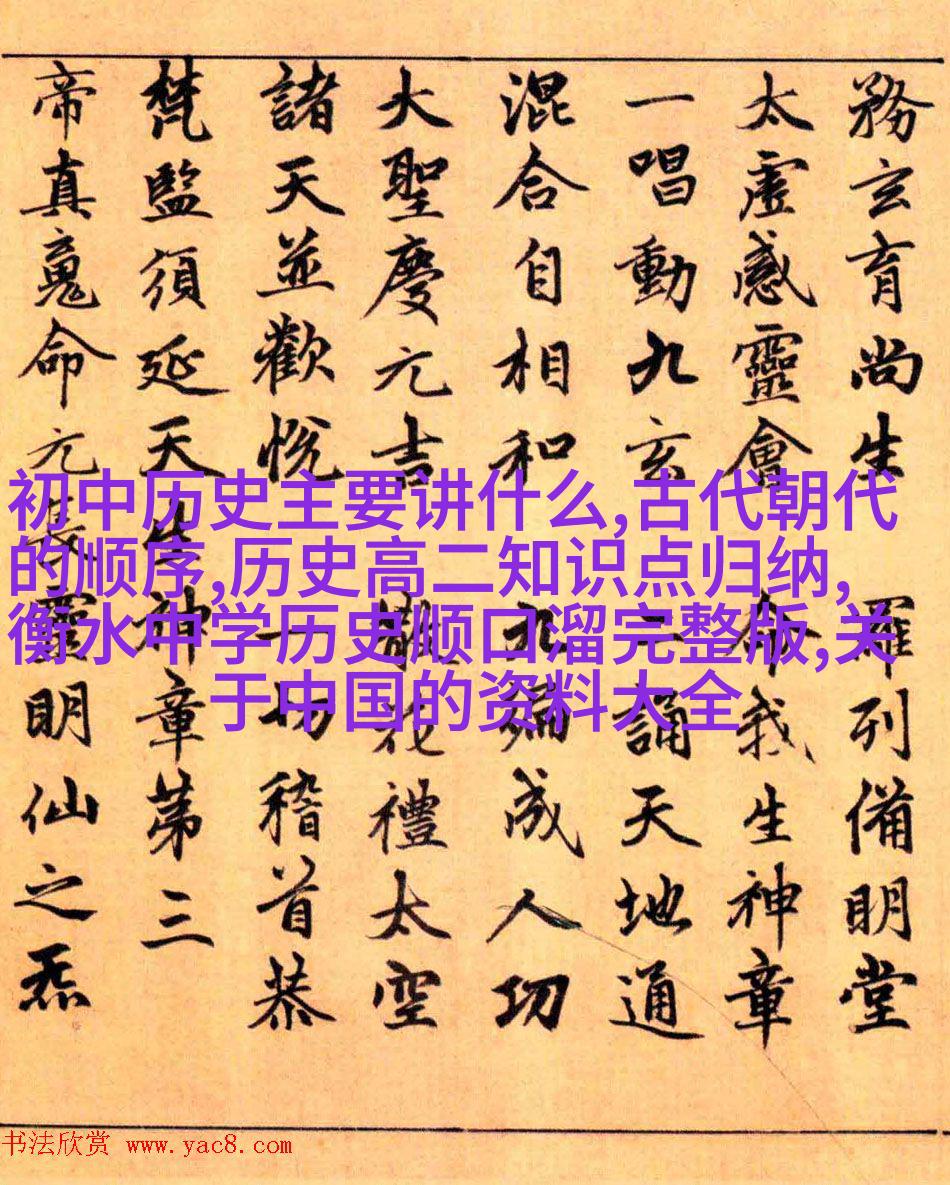 務玄育尚生 羅列備明堂
太虛感靈會 命我生神章
一唱動九玄 二誦天地通
混合自相和 九遍成人功
大聖慶元吉 散花禮太空
諸天並歡悅 一切稽首恭
梵監須延天生神章第三
帝真命元長靈明仙之炁
初中历史主要讲什么,古代朝代
的顺序,历史高二知识点归纳,
衡水中学历史顺口溜完整版,关
于中国的资料大全
书法欣赏 www.yac8.com